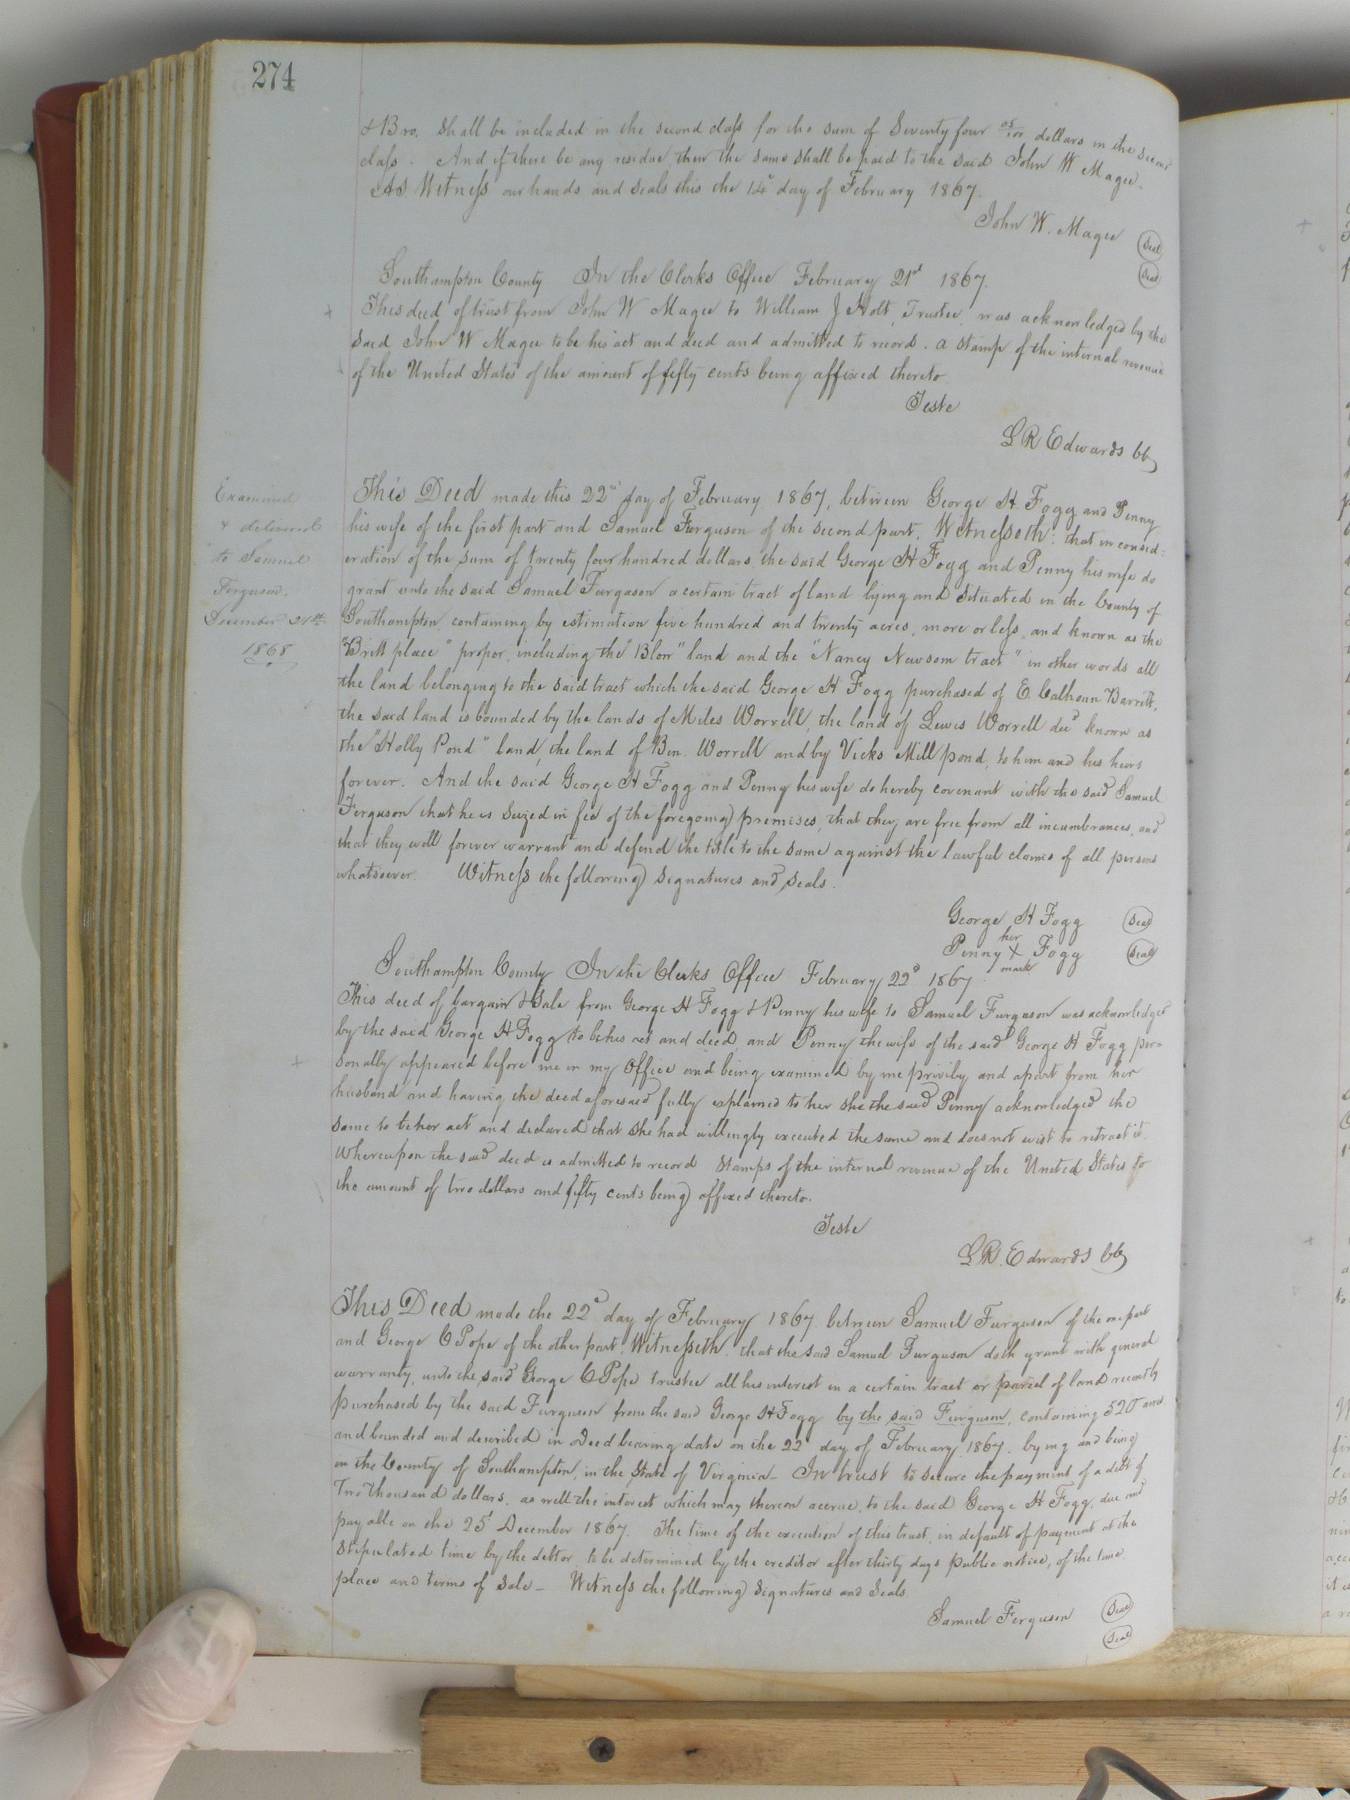 274
& Bro. Shall be included in the second class for the sum of Seventy four 05/100 dollars in the second
class. And if there be any residue then the same shall be paid to the said John W Magee.
As Witness our hands and seals this the 14" day of February 1867.
John W. Magee Seal
Seal
Southampton County In the Clerks Office February 21st 1867.
This deed of trust from John W Magee to William J Holt, Trustee, was acknowledged by the
said John W Magee to be his act and deed and admitted to record. a stamp of the internal revenue
of the United States of the amount of fifty cents being affixed thereto
Teste
L R Edwards CC
Examined
& delivered
to Samuel
Ferguson,
December 21st
1868
This Deed made this 22nd day of February 1867, between George H. Fogg and Penny
his wife of the first part and Samuel Ferguson of the second part, Witnesseth: that in consid=
eration of the sum of twenty four hundred dollars the said George H Fogg and Penny his wife do
grant unto the said Samuel Furgason a certain tract of land lying and situated in the County of
Southampton, containing by estimation five hundred and twenty acres, more or less, and known as the
"Britt place" proper, including the "Blow" land and the "Nancy Newsom tract" in other words all
the land belonging to the said tract which the said George H Fogg purchased of E. Calhoun Barrett,
the said land is bounded by the lands of Miles Worrell, the land of Lewis Worrell decd known as
the "Holly Pond" land, the land of Ben. Worrell and by Vicks Mill pond, to him and his heirs
forever. And the said George H Fogg and Penny his wife do hereby covenant with the said Samuel
Ferguson that he is Seized in fee of the foregoing premises, that they are free from all incumbrances, and
that they will forever warrant and defend the title to the same against the lawful claims of all persons
whatsoever. Witness the following signatures and seals.
George H Fogg Seal
her
Penny X Fogg Seal
mark
Southampton County In the Clerks Office February 22d 1867
This deed of bargain & Sale from George H Fogg & Penny his wife to Samuel Furguson was acknowledged
by the said George H Fogg to be his act and deed and Penny the wife of the said George H Fogg per=
sonally appeared before me in my Office and being examined by me privily and apart from her
husband and having the deed aforesaid fully explained to her she the said Penny acknowledged the
same to be her act and declared that she had willingly executed the same and does not wist to retract it.
Whereupon the said deed is admitted to record Stamps of the internal revenue of the United States to
the amount of two dollars and fifty cents being affixed thereto.
Teste
L R. Edwards CC
This Deed made the 22d day of February 1867 between Samuel Furguson of the one part
and George C Pope of the other part. Witnesseth, that the said Samuel Furguson doth grant with general
warranty, unto the said George C Pope trustee all his interest in a certain tract or parcel of land recently
purchased by the said Furguson from the said George H Fogg by the said Furguson, containing 520 acres
and bounded and described in Deed bearing date on the 22d day of February 1867. lying and being
in the County of Southampton, in the State of Virginia. In trust to secure the payment of a debt of
Two thousand dollars, as well the interest which may thereon accrue, to the said George H Fogg, due and
payable on the 25t December 1867. The time of the execution of this trust, in default of payment at the
stipulated time by the debtor, to be determined by the creditor after thirty days public notice, of the time
place and terms of sale. Witness the following signatures and Seals.
Samuel Ferguson Seal
Seal